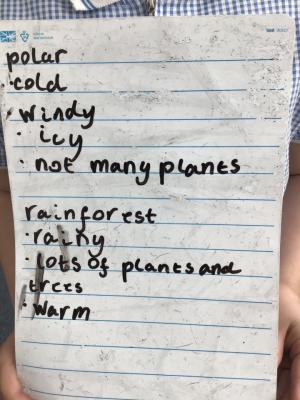 polar
·cold
·windy
· icy
· not many plants
rainforest
·rainy
·lots of plants and
trees
·warm